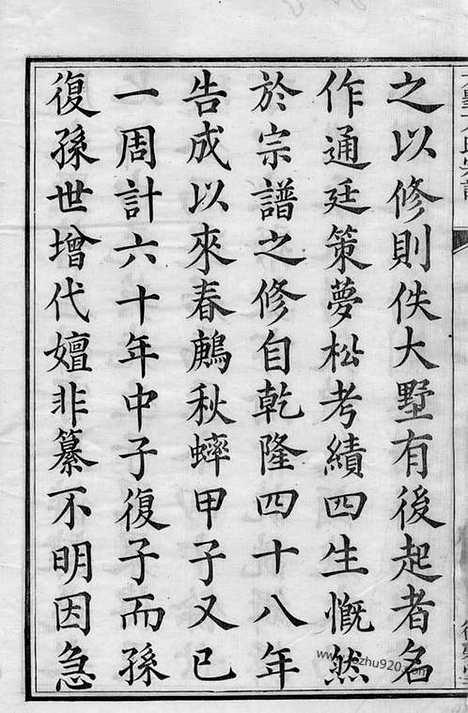 之以修則佚大墅有後起者名
作通廷策夢松考績四生慨然
於宗譜之修自乾隆四十八年
告成以來春鷉秋蟀甲子又已
一周計六十年中子復子而孫
復孫世增代嬗非纂不明因急